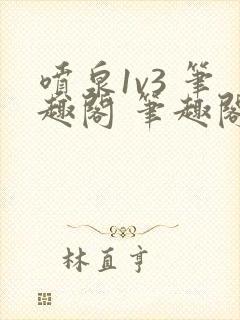 噴泉1v3 筆
趣閣 筆趣閣
林直亨